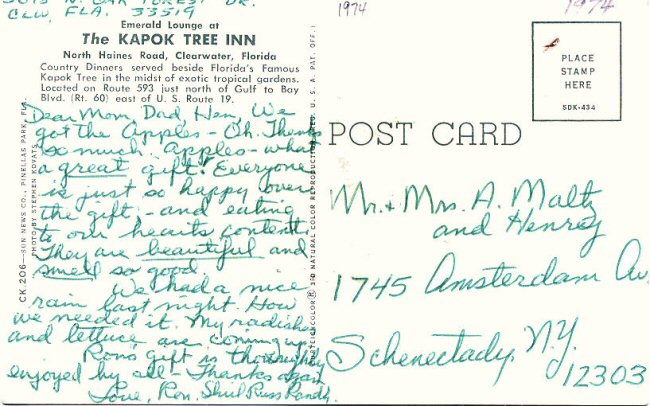 CLW, FLA. 33519
Emerald Lounge at
The KAPOK TREE INN
North Haines Road, Clearwater, Florida
Country Dinners served beside Florida's Famous
Kapok Tree in the midst of exotic tropical gardens.
Located on Route 593 just north of Gulf to Bay
Blvd. (Rt. 60) east of U. S. Route 19.
Dear Mom, Dad, Hen, We
got the Apples - Oh. Thanks
so much. Apples - what
a great gift! Everyone
is just so happy over
the gift, - and eating
to our hearts content.
They are beautiful and
smell so good.
We had a nice
rain last night. How
we needed it. My radishes
and lettuce are coming up.
Rons gift is thoroughly
enjoyed by all - Thanks again
Love, Ron, Shirl Russ Randy.
CK 206—SUN NEWS CO., PINELLAS PARK, FLA.
PHOTO BY STEPHEN KOVATS
NATURAL COLOR REPRODUCTION U. S. A. PAT. OFF.
1974
1974
PLACE
STAMP
HERE
SDK-434
POST CARD
Mr. & Mrs. A. Maltz
and Henrey
1745 Amsterdam Av.
Schenectady, N.Y.
12303